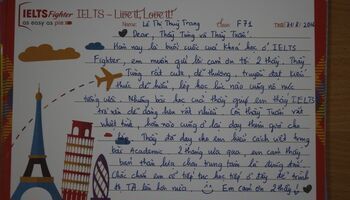 IELTS Fighter IELTS - Live it, Love it!
as easy as pie
Name: Lê Thị Thuỳ Trang Class: F71
Dear, Thầy Tùng và Thầy Tuấn.
Hôm nay là buổi cuối cùng khoá học ở IELTS
Fighter, em muốn gửi lời cảm ơn tới 2 thầy. Thầy
Tùng rất cute, dễ thương, truyền đạt kiến
thức dễ hiểu, lớp học lúc nào cũng nô nức
tiếng cười. Những bài học của thầy giúp em thấy IELTS
trở nên dễ dàng hơn rất nhiều. Còn thầy Tuấn rất
nhiệt tình, hôm nào cũng ở lại dạy thêm giờ cho
lớp. Thầy đã dạy cho em hiểu cách viết trong
bài Academic. 2 tháng vừa qua, em cảm thấy
bản thân lựa chọn trung tâm là đúng đắn.
Chắc chắn em sẽ tiếp tục học tiếp ở đây để trình
độ TA lên hơn nữa. Em cảm ơn 2 thầy!